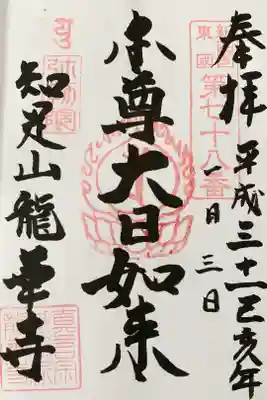 奉拝 平成三十一己亥年
一月三日
第七十八番
本尊大日如来
知足山龍華寺
真言宗